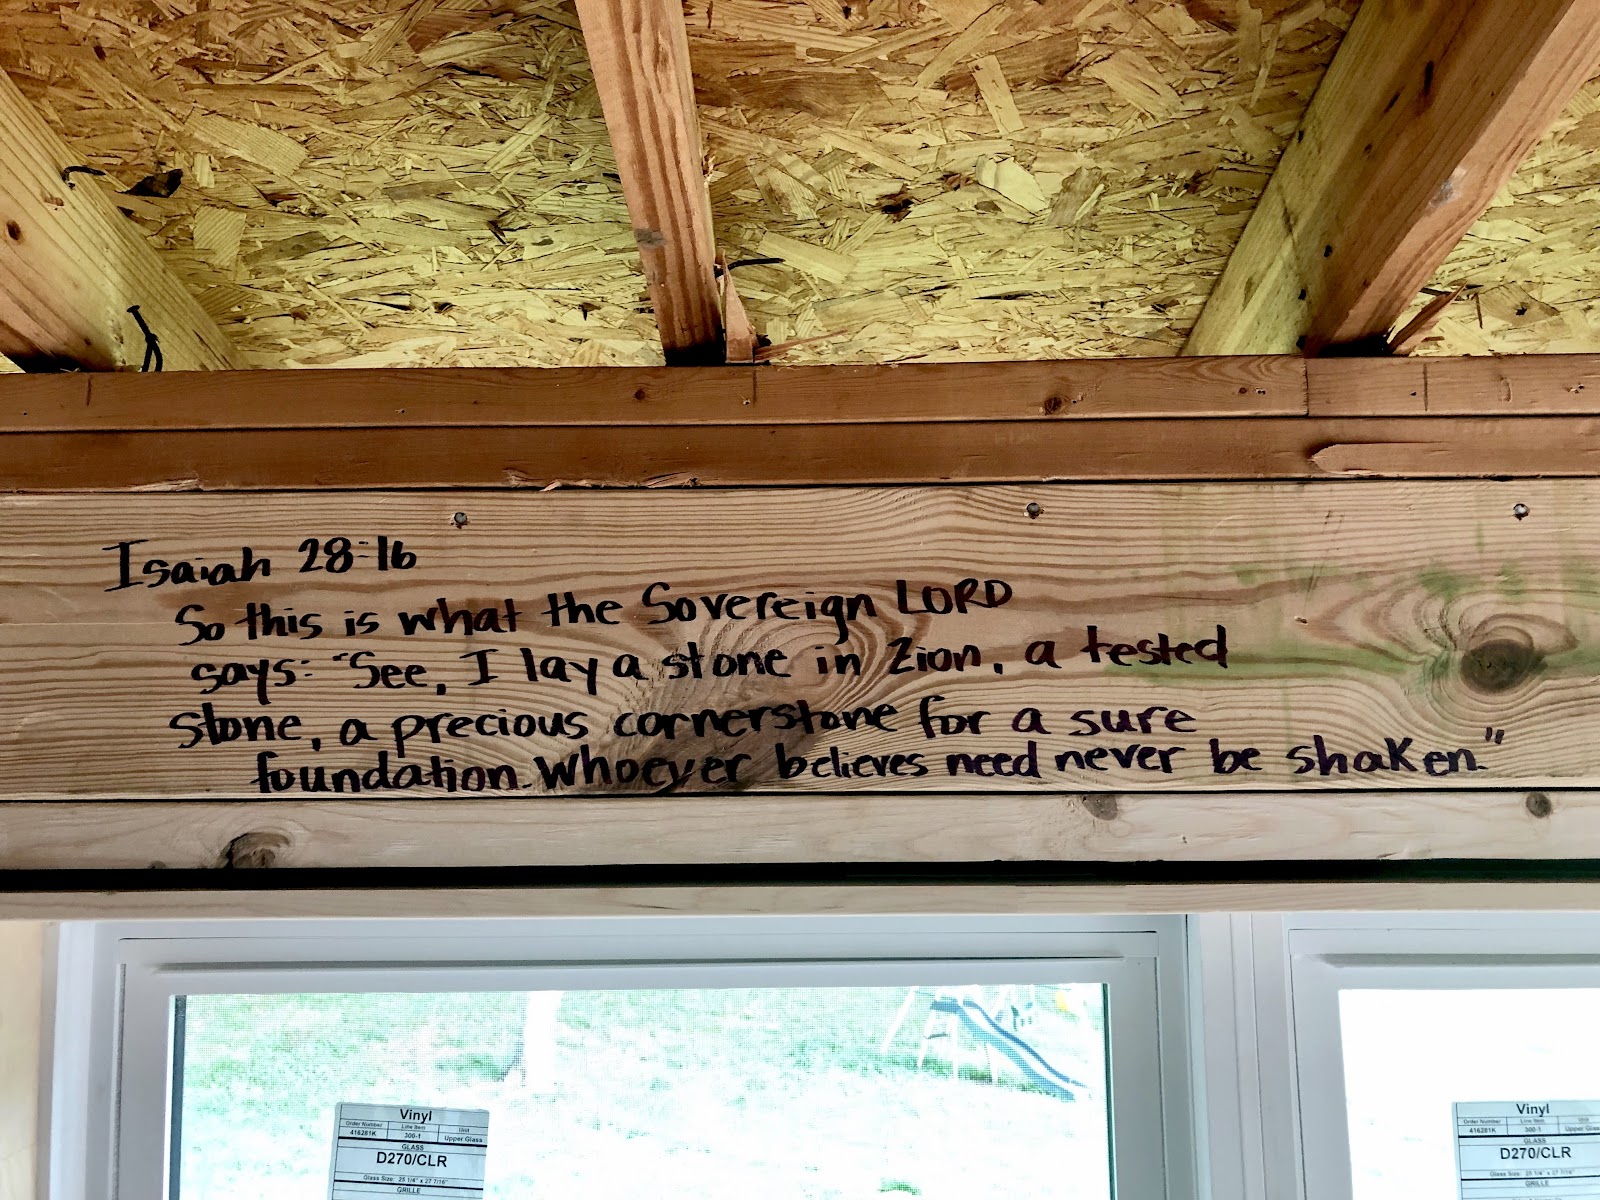 Isaiah 28:16
So this is what the Sovereign LORD
says: "See, I lay a stone in Zion, a tested
stone, a precious cornerstone for a sure
foundation. Whoever believes need never be shaken."
Vinyl
Order Number Line Item Unit
416281K 300-1 Upper Glass
GLASS
D270/CLR
Glass Size: 25 1/4" x 27 7/16"
GRILLE
Vinyl
Order Number Line Item Unit
416281K 300-1 Upper Glass
GLASS
D270/CLR
Glass Size: 25 1/4" x 27 7/16"
GRILLE